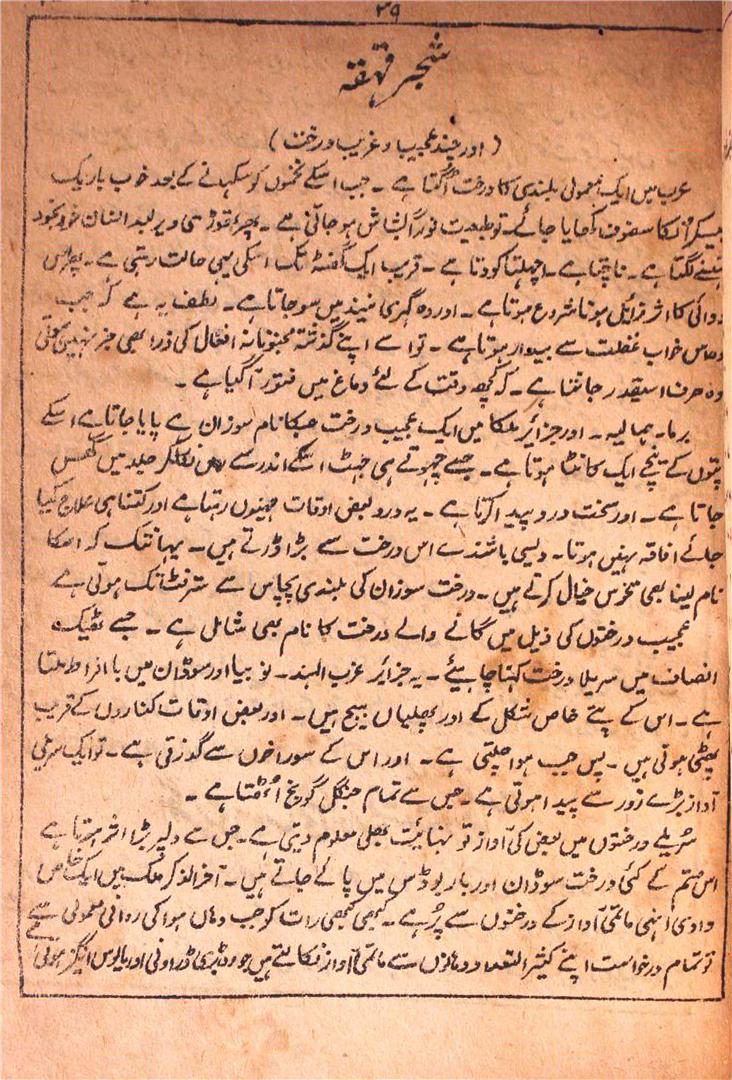 ۳۹
شجر قہقہہ
(اور چند عجیب و غریب درخت)
عرب میں ایک معمولی بلندی کا درخت اُگتا ہے ۔ جب اسکے تخموں کو سکہانے کے بعد خوب باریک
پیسکر انکا سفوف کھایا جائے ۔ تو طبیعت فوراً بشاش ہو جاتی ہے ۔ پھر تھوڑی دیر بعد انسان خود بخود
ہنسنے لگتا ہے ۔ ناچتا ہے ۔ اچھلتا کودتا ہے ۔ قریب ایک گھنٹہ تک اسکی یہی حالت رہتی ہے ۔ پھر اس
دوائی کا اثر زائل ہونا شروع ہوتا ہے ۔ اور وہ گہری نیند میں سو جاتا ہے ۔ لطف یہ ہے کہ جب
وہ اس خواب غفلت سے بیدار ہوتا ہے ۔ تو اسے اپنے گذشتہ مجنونانہ افعال کی ذرا بھی خبر نہیں ہوتی
وہ صرف اسیقدر جانتا ہے ۔ کہ کچھ وقت کے لئے دماغ میں فتور آ گیا ہے ۔
برما ۔ ہمالیہ ۔ اور جزائر ملکا میں ایک عجیب درخت جسکا نام سوزان ہے پایا جاتا ہے اسکے
پتوں کے نیچے ایک کانٹا ہوتا ہے ۔ جسے چھوتے ہی جہٹ اسکے اندر سے نکلکر جلد میں گھس
جاتا ہے ۔ اور سخت درد پیدا کرتا ہے ۔ یہ درد بعض اوقات مہینوں رہتا ہے اور کتنا ہی علاج کیا
جائے افاقہ نہیں ہوتا ۔ دیسی باشندے اس درخت سے بڑا ڈرتے ہیں ۔ یہانتک کہ اسکا
نام لینا بھی نحوس خیال کرتے ہیں ۔ درخت سوزان کی بلندی پچاس سے ستر فٹ تک ہوتی ہے
عجیب درختوں کی ذیل میں گانے والے درخت کا نام بھی شامل ہے ۔ جسے ٹھیک
انصاف میں سریلا درخت کہنا چاہیئے ۔ یہ جزائر غرب الہند ۔ نوبیا اور سوڈان میں با افراط ملتا
ہے ۔ اس کے پتے خاص شکل کے اور پھلیاں بیج ہیں ۔ اور بعض اوقات کناروں کے قریب
پھٹی ہوتی ہیں ۔ پس جب ہوا چلتی ہے ۔ اور اس کے سوراخوں سے گذرتی ہے ۔ تو ایک سریلی
آواز بڑے زور سے پیدا ہوتی ہے ۔ جس سے تمام جنگل گونج اُٹھتا ہے ۔
سُریلے درختوں میں بعض کی آواز تو نہایت بھلی معلوم دیتی ہے ۔ جس سے دلپر بڑا اثر ہوتا ہے
اس قسم کے کئی درخت سوڈان اور باربوڈس میں پائے جاتے ہیں ۔ آخر الذکر ملک میں ایک خاص
وادی اپنی ماتمی آواز کے درختوں سے پُر ہے ۔ کبھی کبھی رات کو جب وہاں ہوا کی روانی معمولی سے
تو تمام درخواست اپنے کثیر التعداد دہانوں سے ماتمی آواز نکالتے ہیں جو بڑی ڈراونی اور مایوس انگیز ہوتی